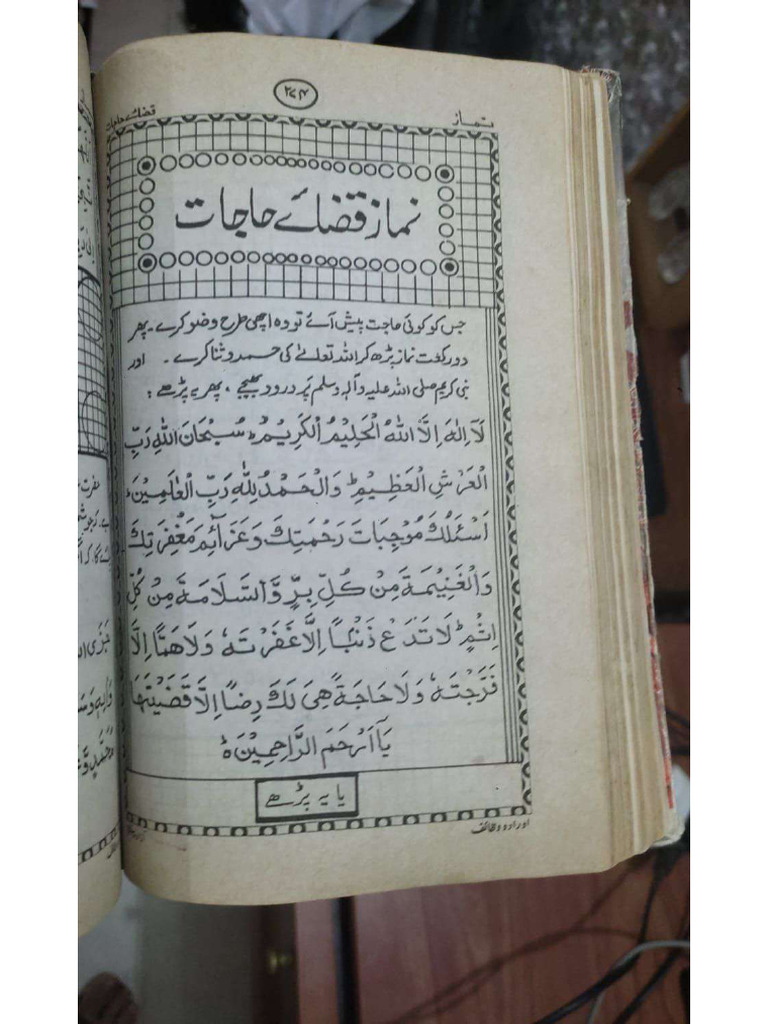 نماز
۲۷۴
قضائے حاجات
نماز قضائے حاجات
جس کو کوئی حاجت پیش آئے تو وہ اچھی طرح وضو کرے۔ پھر
دو رکعت نماز پڑھ کر اللہ تعالےٰ کی حمد و ثنا کرے۔ اور
نبی کریم صلی اللہ علیہ وآلہٖ وسلم پر درود بھیجے، پھر یہ پڑھے:
لَآ اِلٰهَ اِلَّا اللّٰهُ الْحَلِيْمُ الْكَرِيْمُ ط سُبْحَانَ اللّٰهِ رَبِّ
الْعَرْشِ الْعَظِيْمِ ط وَالْحَمْدُ لِلّٰهِ رَبِّ الْعٰلَمِيْنَ ط
اَسْئَلُكَ مُوْجِبَاتَ رَحْمَتِكَ وَعَزَآئِمَ مَغْفِرَتِكَ
وَالْغَنِيْمَةَ مِنْ كُلِّ بِرٍّ وَّالسَّلَامَةَ مِنْ كُلِّ
اِثْمٍ ط لَا تَدَعْ ذَنْۢبًا اِلَّا غَفَرْتَهٗ وَلَا هَمًّا اِلَّا
فَرَّجْتَهٗ وَلَا حَاجَةً هِيَ لَكَ رِضًا اِلَّا قَضَيْتَهَا
يَآ اَرْحَمَ الرَّاحِمِيْنَ ط
یا یہ پڑھے
اوراد و وظائف